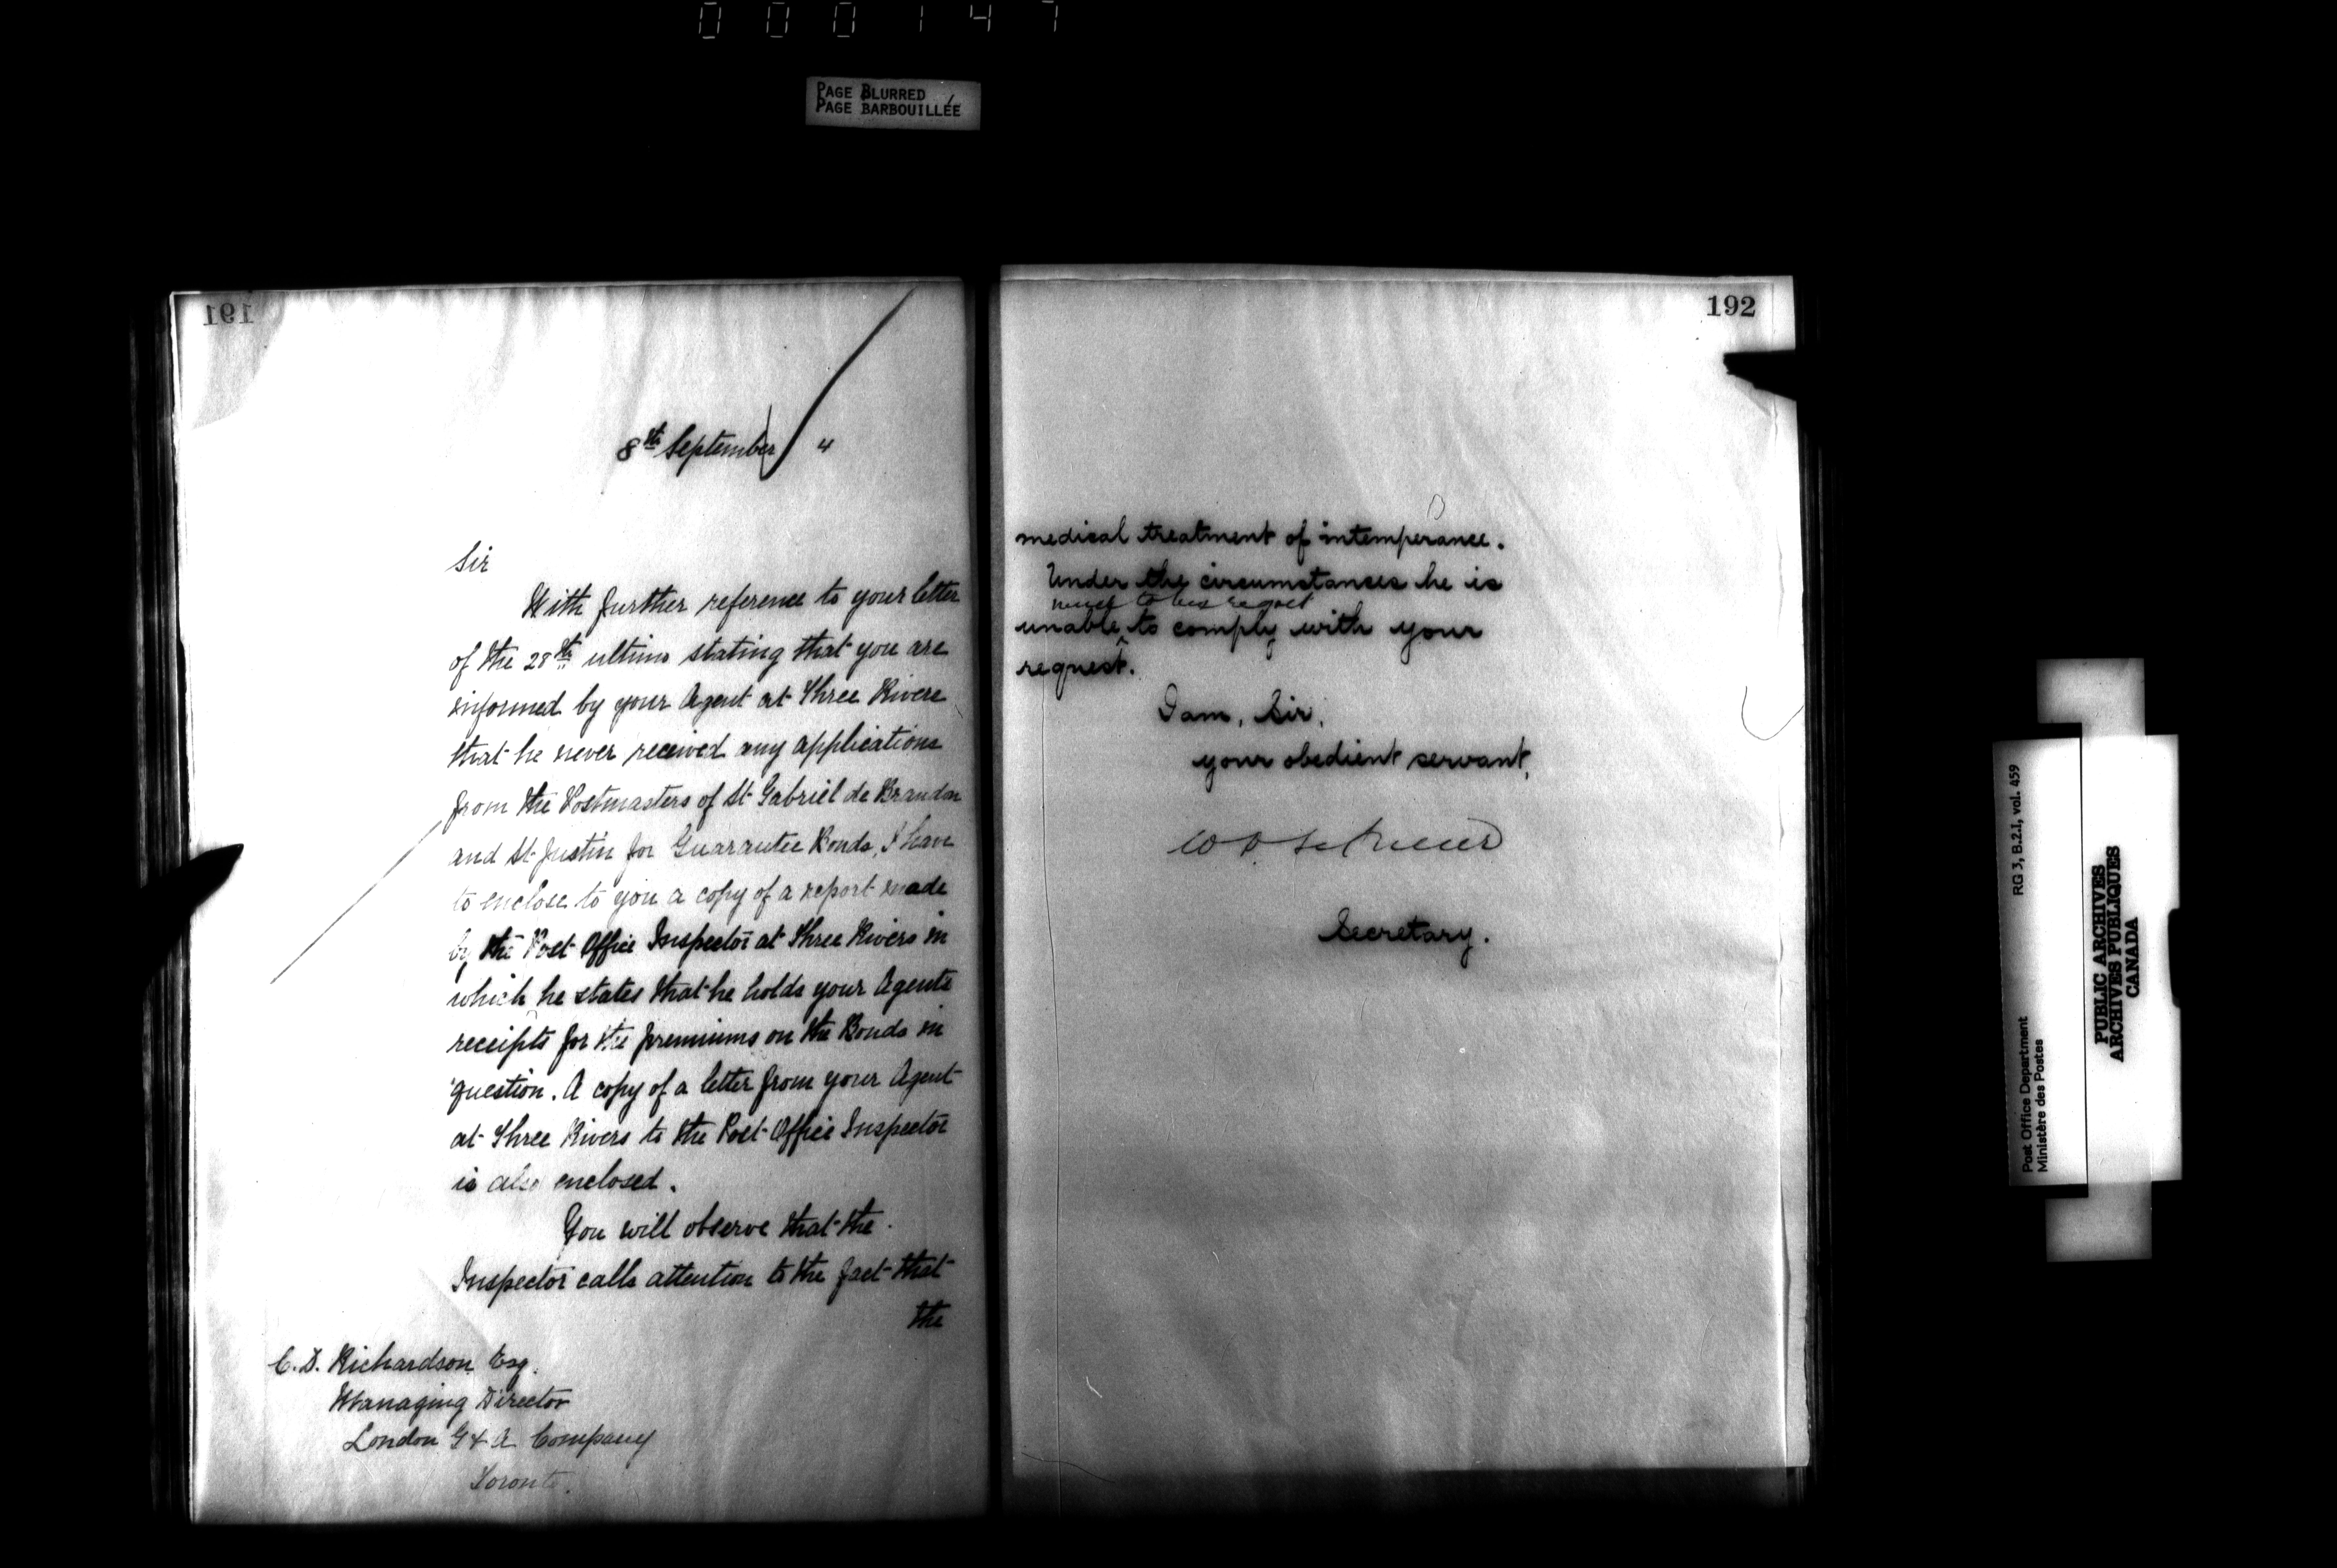 000147
PAGE BLURRED
PAGE BARBOUILLÉE
191
8th September 4
Sir
With further reference to your letter
of the 28th ultimo stating that you are
informed by your Agent at Three Rivers
that he never received any applications
from the Postmasters of St Gabriel de Brandon
and St Justin for Guarantee Bonds, I have
to enclose to you a copy of a report made
by the Post Office Inspector at Three Rivers in
which he states that he holds your Agents
receipts for the premiums on the Bonds in
question. A copy of a letter from your Agent
at Three Rivers to the Post Office Inspector
is also enclosed.
You will observe that the
Inspector calls attention to the fact that
the
C. D. Richardson Esq.
Managing Director
London G & A Company
Toronto.
192
medical treatment of intemperance.
Under the circumstances he is
much to his regret
unable ^ to comply with your
request.
I am, Sir,
your obedient servant,
Secretary.
RG 3, B.2.1, vol. 459
Post Office Department
Ministère des Postes
PUBLIC ARCHIVES
ARCHIVES PUBLIQUES
CANADA